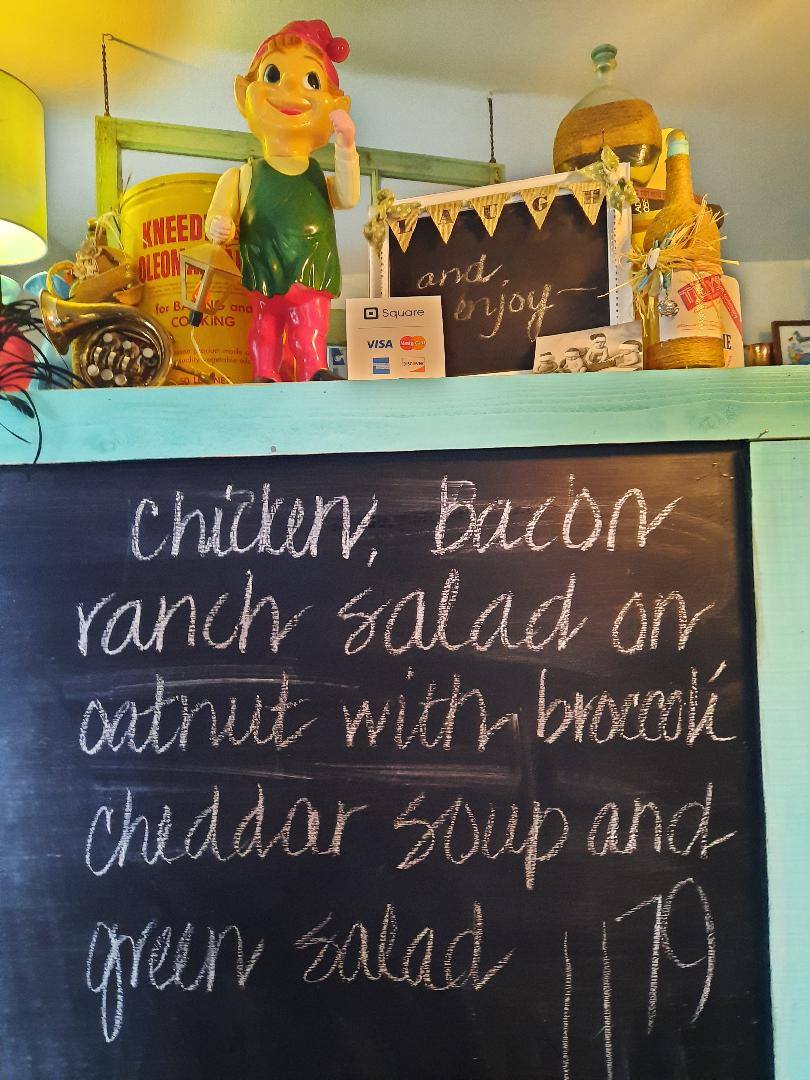 KNEED
OLEOMA
for BA NG and
COOKING
50 L
LAUGH
and
enjoy
Square
VISA MasterCard
DISCOVER
chicken, bacon
ranch salad on
oatnut with broccoli
cheddar soup and
green salad 1179